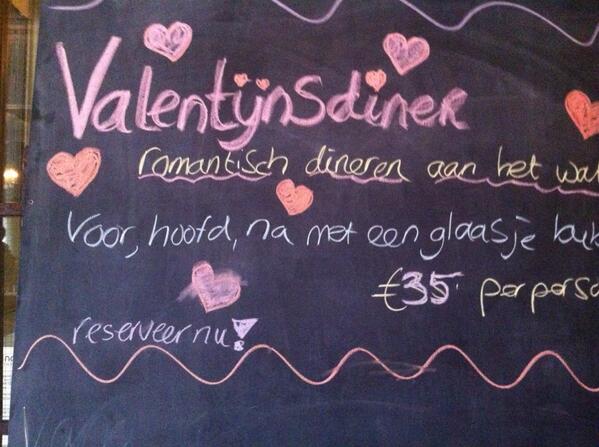 Valentijnsdiner
romantisch dineren aan het wa
Voor, hoofd, na met een glaasje
€35 per perso
reserveer nu!